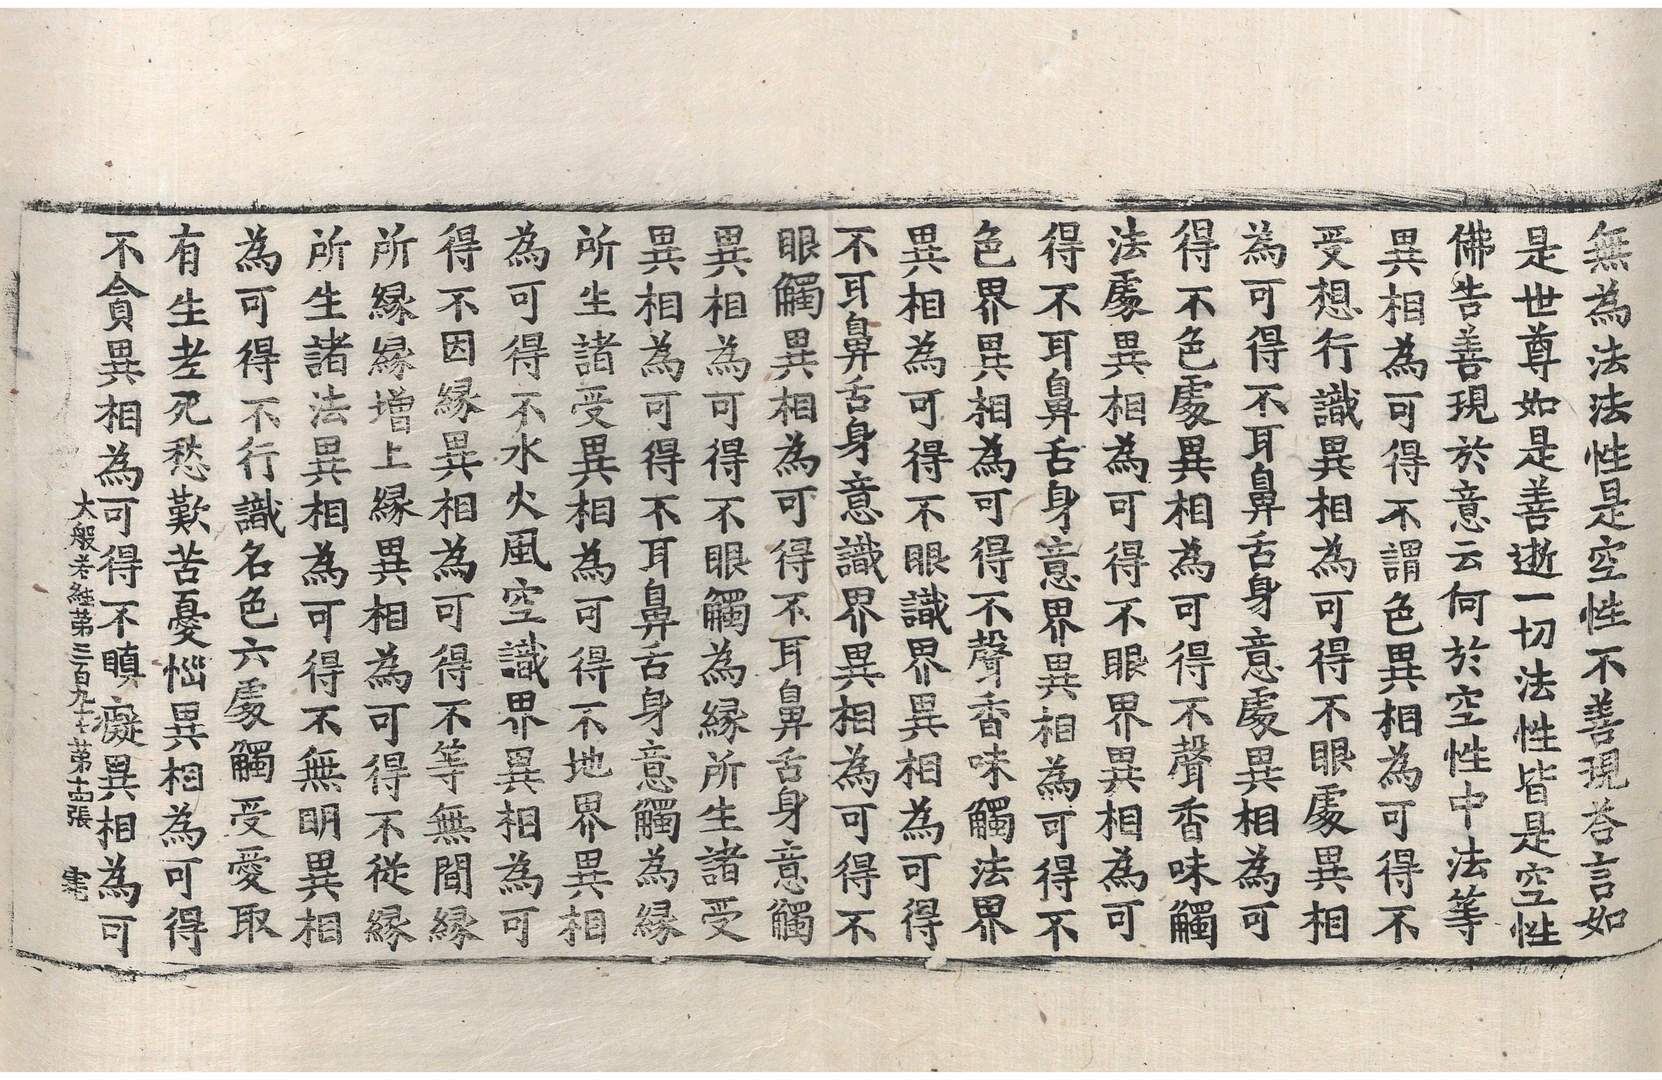 無為法法性是空性不善現荅言如
是世尊如是善逝一切法性皆是空性
佛告善現於意云何於空性中法等
異相為可得不謂色異相為可得不
受想行識異相為可得不眼處異相
為可得不耳鼻舌身意處異相為可
得不色處異相為可得不聲香味觸
法處異相為可得不眼界異相為可
得不耳鼻舌身意界異相為可得不
色界異相為可得不聲香味觸法界
異相為可得不眼識界異相為可得
不耳鼻舌身意識界異相為可得不
眼觸異相為可得不耳鼻舌身意觸
異相為可得不眼觸為縁所生諸受
異相為可得不耳鼻舌身意觸為縁
所生諸受異相為可得不地界異相
為可得不水火風空識界異相為可
得不因縁異相為可得不等無間縁
所縁縁增上縁異相為可得不從縁
所生諸法異相為可得不無明異相
為可得不行識名色六處觸受愛取
有生老死愁歎苦憂惱異相為可得
不貪異相為可得不瞋癡異相為可
大般若經第三百九十七 第十四張